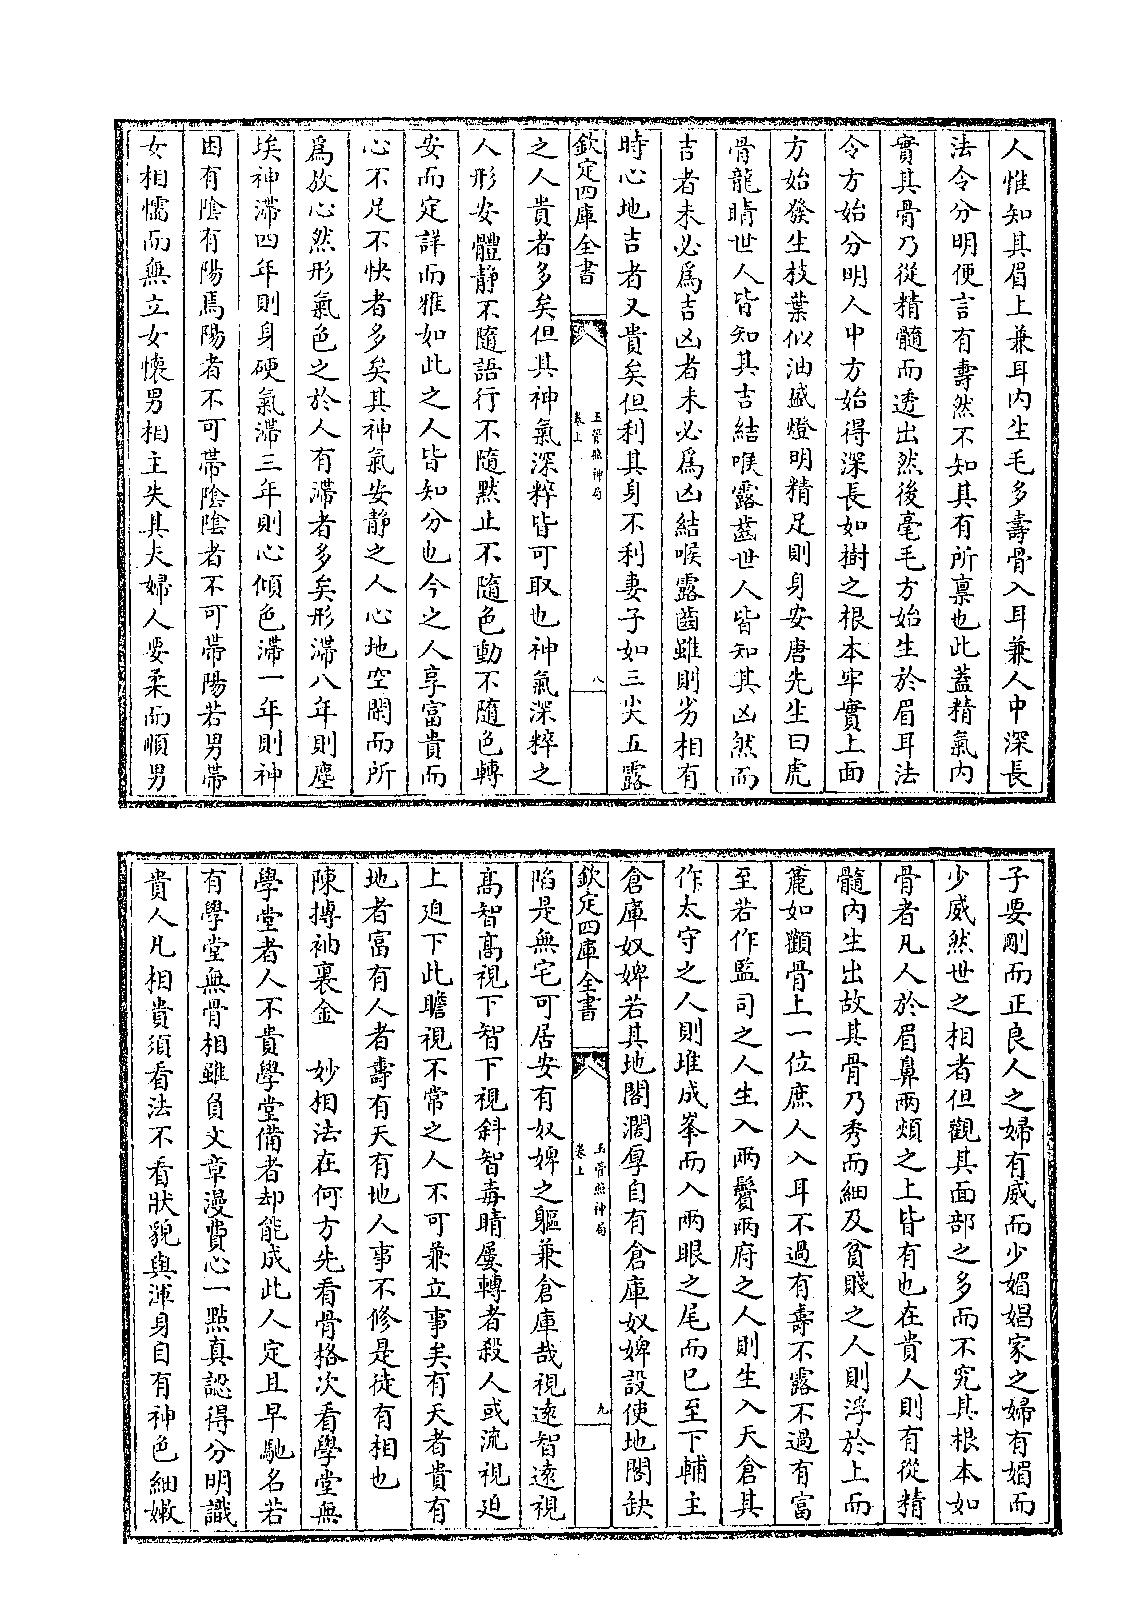 人惟知其眉上兼耳内生毛多壽骨入耳兼人中深長
法令分明便言有壽然不知其有所禀也此蓋精氣内
實其骨乃從精髓而透出然後毫毛方始生於眉耳法
令方始分明人中方始得深長如樹之根本牢實上面
方始發生枝葉似油盛燈明精足則身安唐先生曰虎
骨龍睛世人皆知其吉結喉露齒世人皆知其凶然而
吉者未必爲吉凶者未必爲凶結喉露齒雖則劣相有
時心地吉者又貴矣但利其身不利妻子如三尖五露
欽定四庫全書
玉管照神局
卷上
八
之人貴者多矣但其神氣深粹皆可取也神氣深粹之
人形安體靜不隨語行不隨默止不隨色動不隨色轉
安而定詳而雅如此之人皆知分也今之人享富貴而
心不足不快者多矣其神氣安靜之人心地空閒而所
爲放心然形氣色之於人有滯者多矣形滯八年則塵
埃神滯四年則身硬氣滯三年則心傾色滯一年則神
困有陰有陽焉陽者不可帶陰陰者不可帶陽若男帶
女相懦而無立女懷男相主失其夫婦人要柔而順男
子要剛而正良人之婦有威而少媚娼家之婦有媚而
少威然世之相者但觀其面部之多而不究其根本如
骨者凡人於眉鼻兩頰之上皆有也在貴人則有從精
髓内生出故其骨乃秀而細及貧賤之人則浮於上而
麄如顴骨上一位庶人入耳不過有壽不露不過有富
至若作監司之人生入兩鬢兩府之人則生入天倉其
作太守之人則堆成峯而入兩眼之尾而已至下輔主
倉庫奴婢若其地閣濶厚自有倉庫奴婢設使地閣缺
欽定四庫全書
玉管照神局
卷上
九
陷是無宅可居安有奴婢之軀兼倉庫哉視遠智遠視
高智高視下智下視斜智毒睛屢轉者殺人或流視迫
上迫下此瞻視不常之人不可兼立事矣有天者貴有
地者富有人者壽有天有地人事不修是徒有相也
陳摶袖裏金　妙相法在何方先看骨格次看學堂無
學堂者人不貴學堂備者却能成此人定且早馳名若
有學堂無骨相雖負文章漫費心一點真認得分明識
貴人凡相貴須看法不看狀貌與渾身自有神色細嫩